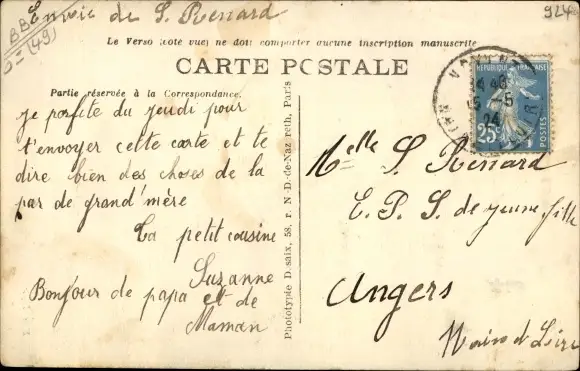 Envoie de S. Renard
924
BB
(49)
Le Verso (côté vue) ne doit comporter aucune inscription manuscrite
CARTE POSTALE
Partie réservée à la Correspondance.
je porfite du jeudi pour
t'envoyer cette carte et te
dire bien des choses de la
par de grand'mère
Ta petit cousine
Suzanne
Bonjour de papa et de
Maman
Phototypie D saix, 58, r. N-D.-de-Naz reth, Paris
REPUBLIQUE FRANÇAISE
25c
POSTES
-5
24
Melle S. Renard
E. P. S. de jeune fille
Angers
Maine et Loire